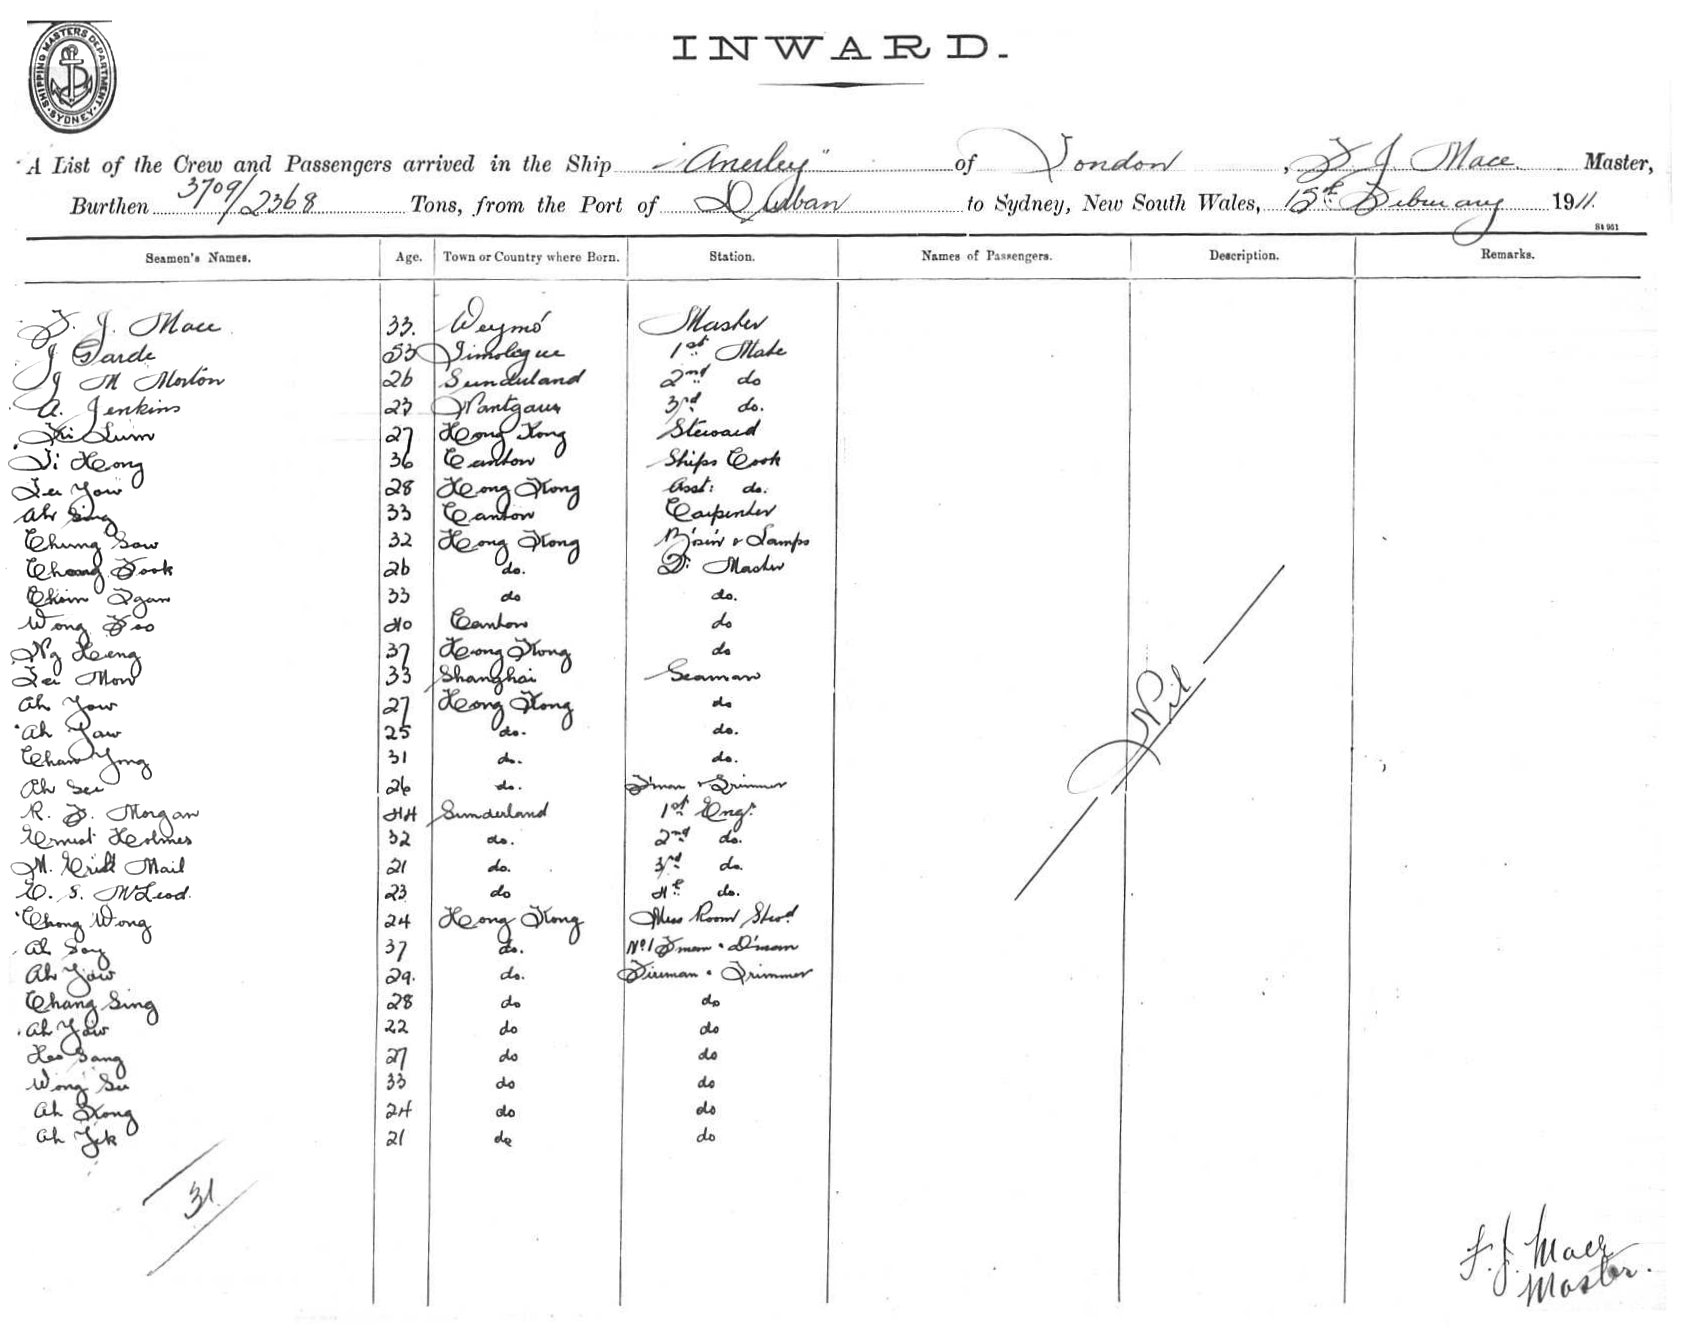 SHIPPING MASTERS DEPARTMENT. SYDNEY.
INWARD.
A List of the Crew and Passengers arrived in the Ship "Anerley" of London, F J Mace Master,
Burthen 3709/2368 Tons, from the Port of Durban to Sydney, New South Wales, 15th February 1911.
St 951
Seamen's Names. Age. Town or Country where Born. Station. Names of Passengers. Description. Remarks.
F. J. Mace 33. Weymo' Master
J 53 Timolegue 1st Mate
J M Morton 26 Sunderland 2nd do
A. Jenkins 23 Nantgaw 3rd do.
Lum 27 Hong Kong Steward
Hong 36 Canton Ships Cook
Lee Yow 28 Hong Kong Asst: do.
Ah Sing 33 Canton Carpenter
Chung Sow 32 Hong Kong B'sin & Lamps
Fook 26 do. Qr Master
33 do do.
Wong Foo 40 Canton do
Ng Heng 37 Hong Kong do
Lee Mow 33 Shanghai Seaman
Ah Yow 27 Hong Kong do
Ah Yaw 25 do. do.
Chan Yong 31 do. do.
Ah See 26 do. F'man & Trimmer
R. F. Morgan 44 Sunderland 1st Engr.
Ernest Holmes 32 do. 2nd do.
M. Mail 21 do. 3rd do.
E. S. McLeod. 23 do 4th do.
Chong Wong 24 Hong Kong Mess Room Stwd
Ah Soy 37 do. No 1 F'man & D'man
Ah Yow 29. do. Fireman & Trimmer
Chang Sing 28 do do
Ah Yow 22 do do
Sang 27 do do
Wong See 33 do do
Ah Kong 24 do do
Ah Yek 21 do do
Nil
31
F. J. Mace
Master.